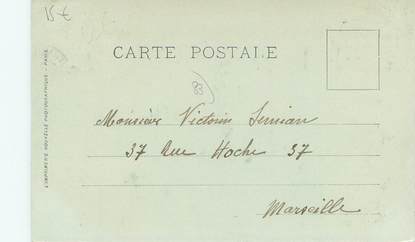 15€
CARTE POSTALE
83
Monsieur Victorin
37 Rue Hoche 37
Marseille
PARIS